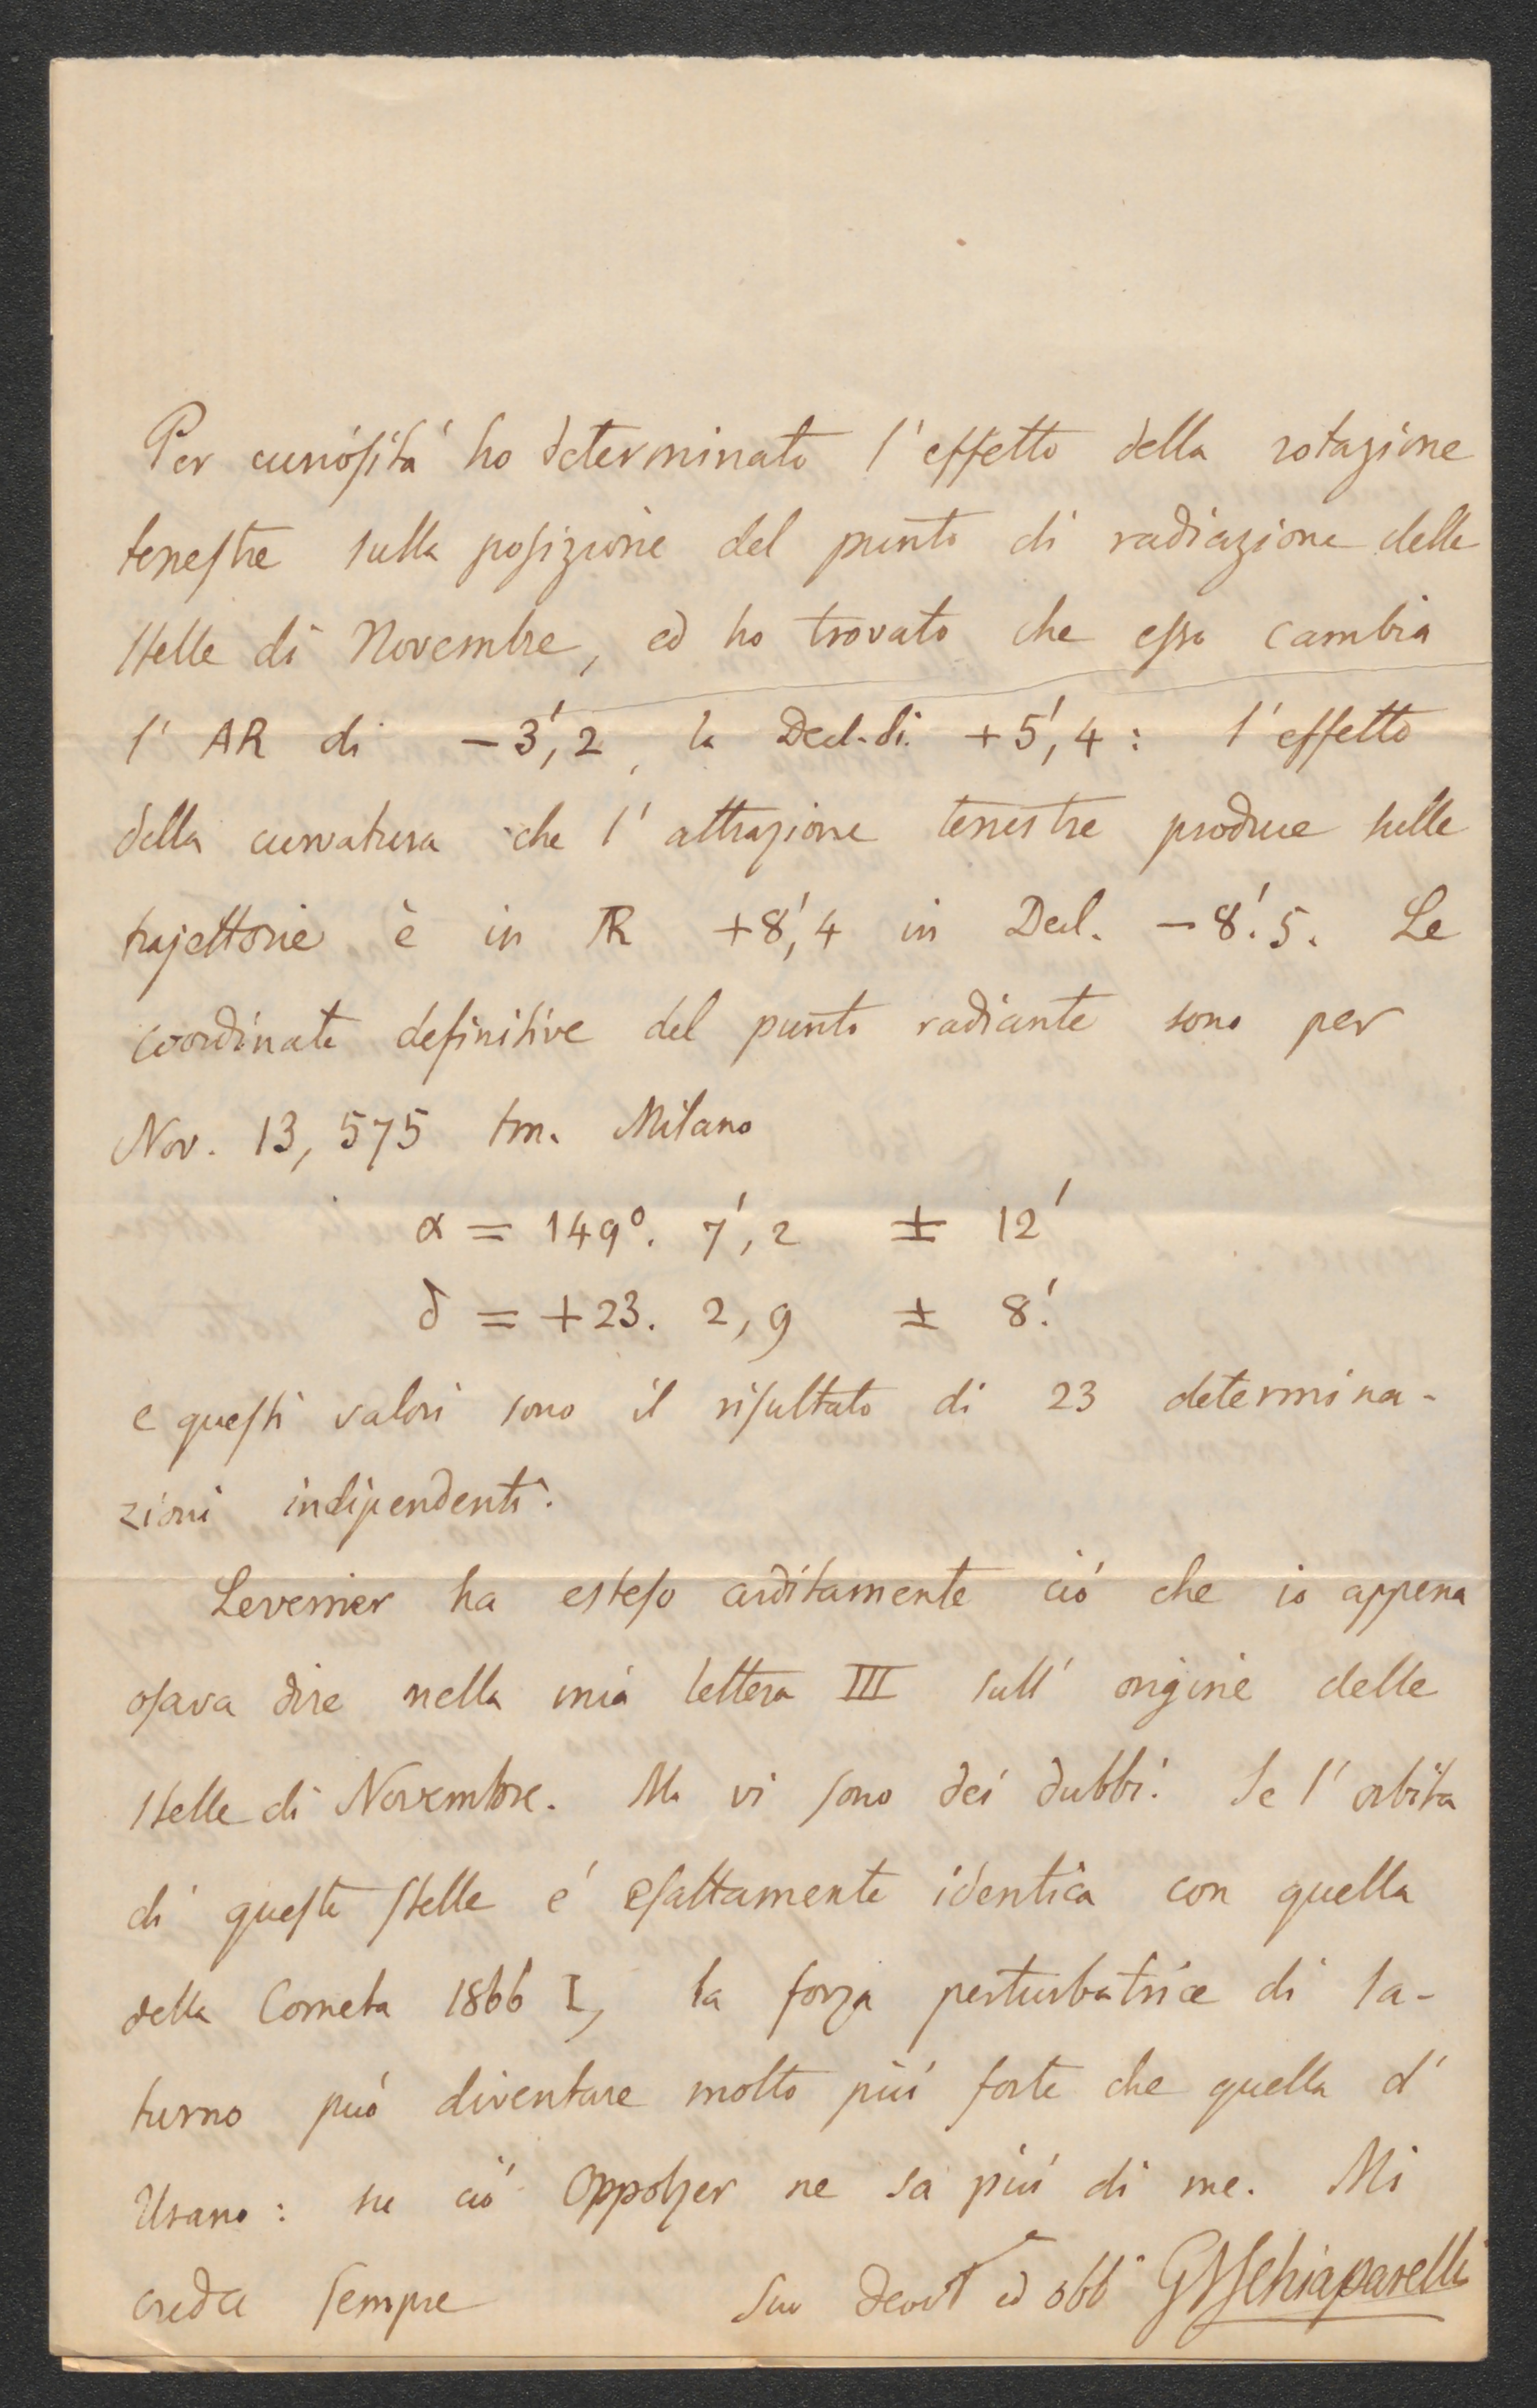 Per curiosità ho determinato l'effetto della rotazione
terrestre sulla posizione del punto di radiazione delle
stelle di Novembre, ed ho trovato che esso cambia
l' AR di −3′,2, la Decl. di +5′,4 : l'effetto
della curvatura che l'attrazione terrestre produce sulle
trajettorie è in AR +8′,4 in Decl. −8′.5. Le
coordinate definitive del punto radiante sono per
Nov. 13,575 tm. Milano
α = 149°. 7′,2 ± 12′
δ = +23. 2,9 ± 8′.
e questi valori sono il risultato di 23 determina-
zioni indipendenti.
Leverrier ha esteso arditamente ciò che io appena
osava dire nella mia lettera III sull' origine delle
stelle di Novembre. Ma vi sono dei dubbi. Se l'orbita
di queste stelle é esattamente identica con quella
della Cometa 1866 I, la forza perturbatrice di Sa-
turno può diventare molto piú forte che quella d'
Urano : su ció Oppolzer ne sa piú di me. Mi
creda sempre Suo Devot ed obb GVSchiaparelli